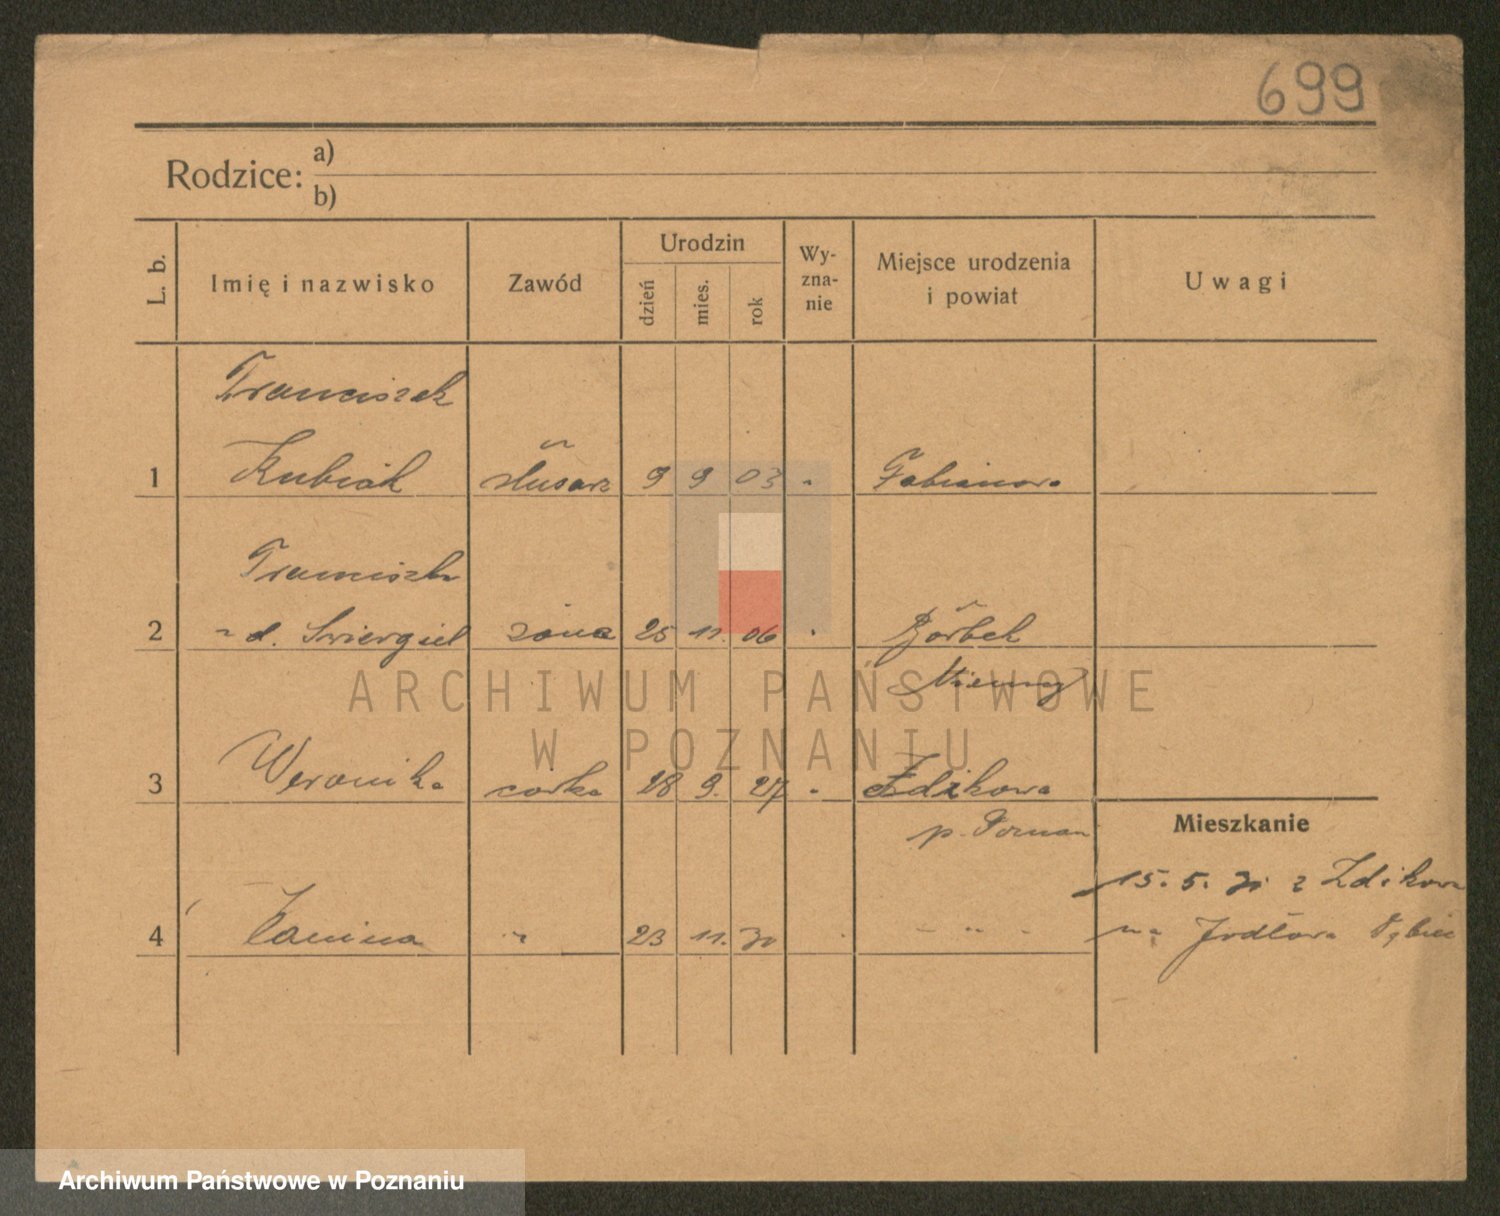 699
Rodzice: a)
b)
L. b. Imię i nazwisko Zawód Urodzin dzień mies. rok Wy-zna-nie Miejsce urodzenia i powiat Uwagi
Franciszek
1 Kubiak ślusarz 9 9 03 " Fabianowo
Franciszka
2 z d. Świergiel żona 25 11. 06 " Börbek
Niemcy
3 Weronika córka 28 9. 27 " Zdikowo
p. Poznań
Mieszkanie
15. 5. 31 z Zdikowa
4 Janina " 23 11. 30 " " "
na Jodłowa Dębiec
ARCHIWUM PAŃSTWOWE
W POZNANIU
Archiwum Państwowe w Poznaniu